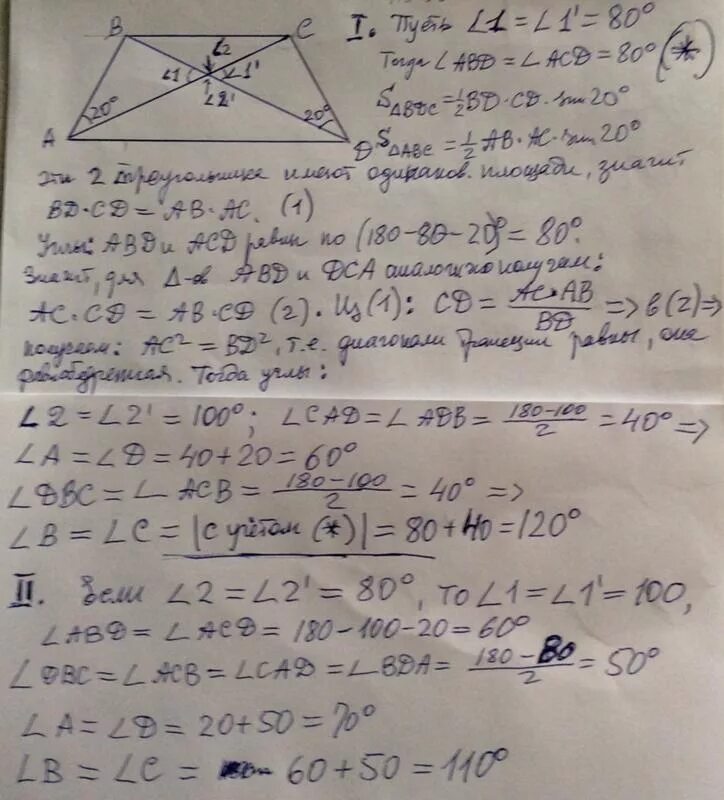 B C
∠2
∠1 ∠1'
∠2'
20° 20°
A D
I. Пусть ∠1 = ∠1' = 80°
Тогда ∠ABD = ∠ACD = 80° (*)
S△BDC = 1/2 BD · CD · sin 20°
S△ABC = 1/2 AB · AC · sin 20°
Эти 2 треугольника имеют одинаков. площади, значит
BD · CD = AB · AC. (1)
Углы ABD и ACD равны по (180 - 80 - 20)° = 80°.
Значит, для Δ-ов ABD и DCA аналогично получаем:
AC · CD = AB · CD (2). Из (1): CD = AC · AB / BD => в (2) =>
получаем: AC² = BD², т.е. диагонали трапеции равны, она
равнобедренная. Тогда углы:
∠2 = ∠2' = 100°; ∠CAD = ∠ADB = 180-100 / 2 = 40° =>
∠A = ∠D = 40 + 20 = 60°
∠DBC = ∠ACB = 180-100 / 2 = 40° =>
∠B = ∠C = |с учётом (*)| = 80 + 40 = 120°
II. Если ∠2 = ∠2' = 80°, то ∠1 = ∠1' = 100,
∠ABD = ∠ACD = 180 - 100 - 20 = 60°
∠DBC = ∠ACB = ∠CAD = ∠BDA = 180 - 80 / 2 = 50°
∠A = ∠D = 20 + 50 = 70°
∠B = ∠C = 60 + 50 = 110°